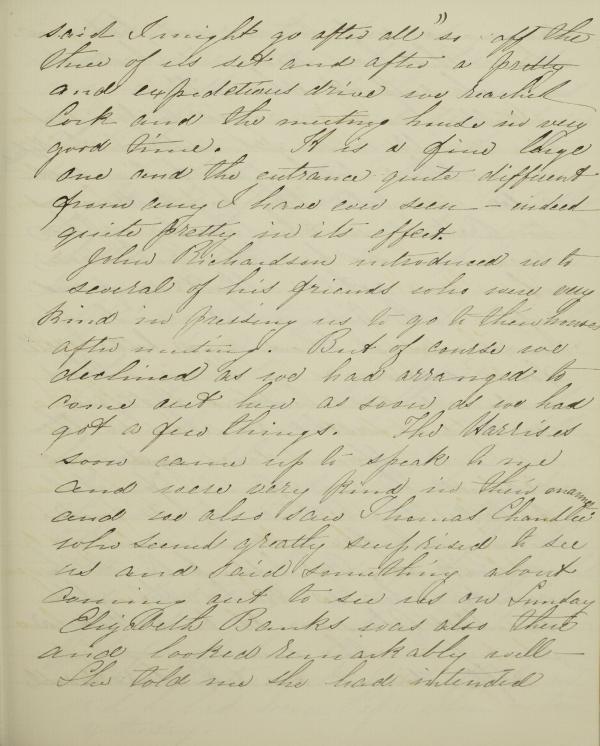 said I might go after all" so off the
three of us set and after a pretty
and expeditious drive we reached
Cork and the meeting house in very
good time. It is a fine large
one and the entrance quite different
from any I have ever seen – indeed
quite pretty in its effect.
John Richardson introduced us to
several of his friends who were very
kind in pressing us to go to their houses
after meeting. But of course we
declined as we had arranged to
come out here as soon as we had
got a few things. The Harrises
soon came up to speak to me
and were very kind in their manner
and we also saw Thomas Chandlee
who seemed greatly surprised to see
us and said something about
coming out to see us on Sunday
Elizabeth Banks was also there
and looked remarkably well –
She told me she had intended